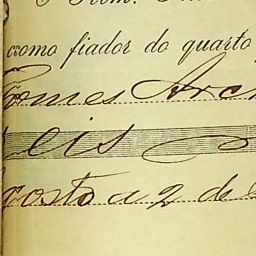 como fiador do quarto
Gomes Arch
eis
gosto a 2 de